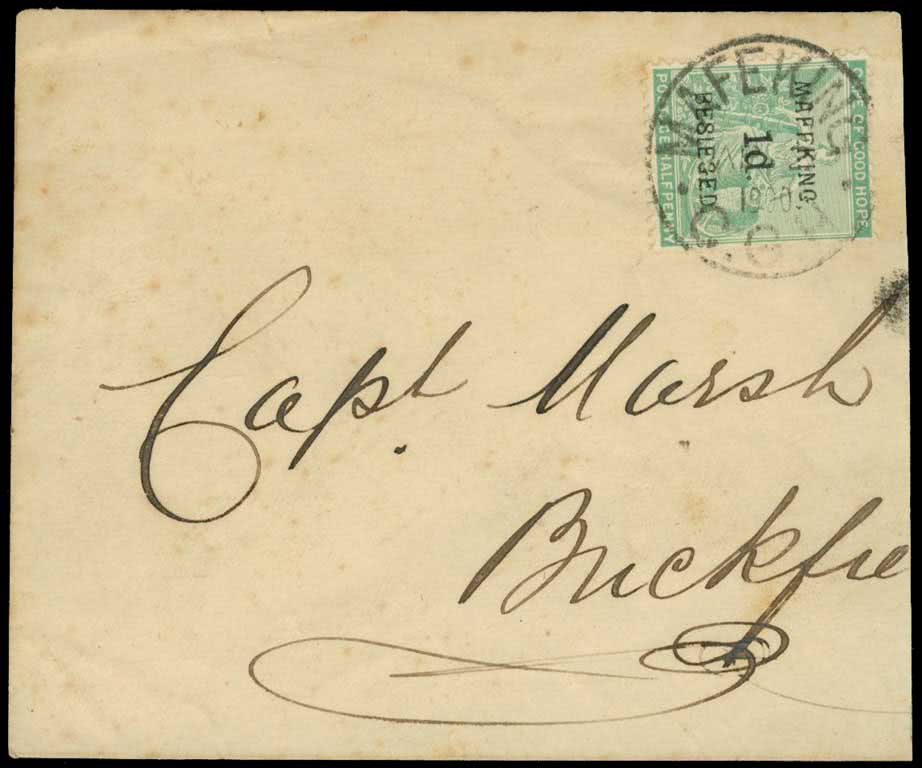 MAFEKING
C.G.H.
1900
CAPE OF GOOD HOPE
MAFEKING,
1d.
BESIEGED.
POSTAGE ONE HALFPENNY
Capt. Marsh
Buckfie